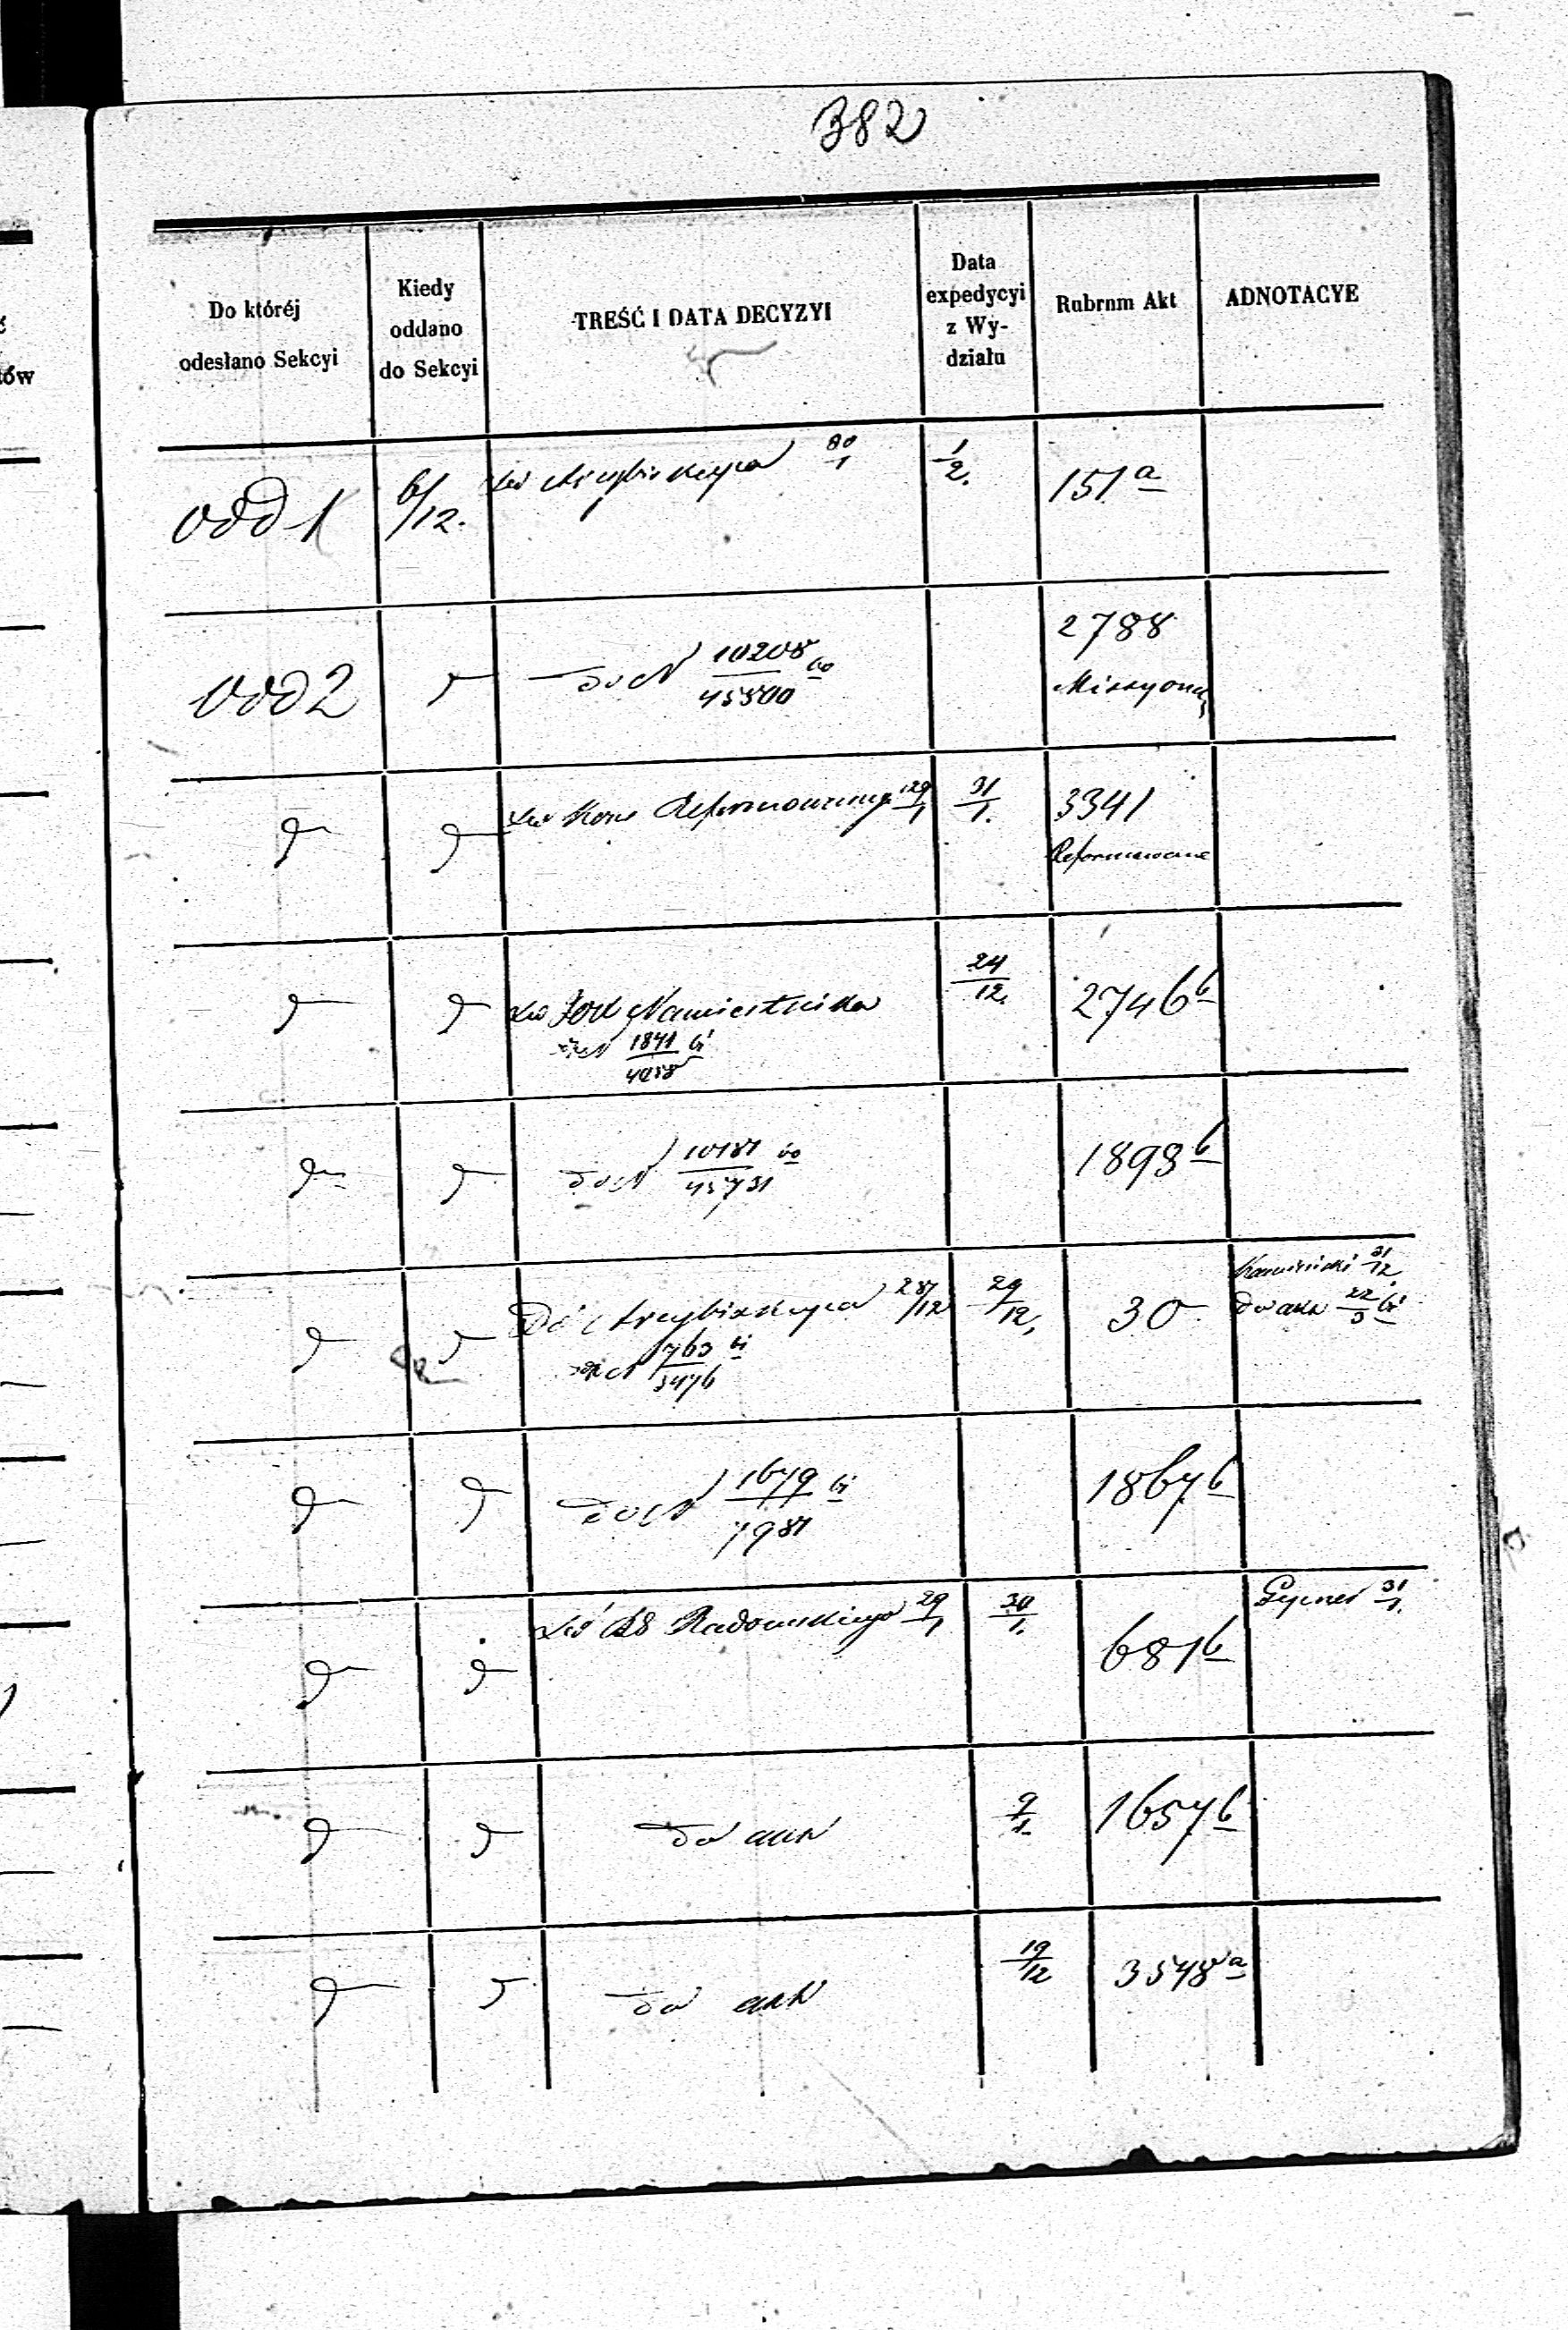 382
Do któréj
odesłano Sekcyi
Kiedy
oddano
do Sekcyi
TREŚĆ I DATA DECYZYI
Data
expedycyi
z Wy-
działu
Rubrum Akt
ADNOTACYE
Odd 1
6/12.
do Arcybiskupa
1/2.
151 a
Odd 2
do N 10208/45500
2788
Missyona
do Kons Reformowanego 29/1
31/1.
3341
Reformowane
do JOX Namiestnika
1841/4058
24/12.
2746 b
do N 10181/45731
1893 b
Do Arcybiskupa 28/12
763/3476
29/12.
30
Kamiński 31/12.
do akt 22/3
do N 1679/7981
1867 b
do RG Radomskiego 29/1
30/1.
681 b
31/1.
do akt
9/1.
1657 b
do akt
19/12
3548 a